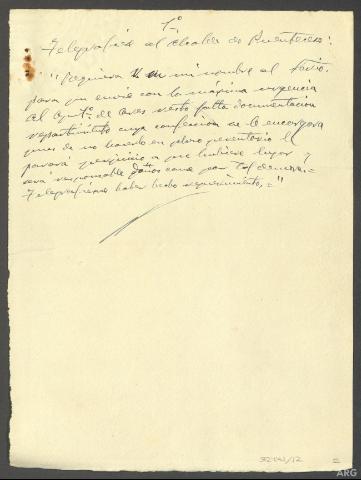 1º
Telegrafiar al Alcalde de Puenteareas:
"Requiera V. en mi nombre al
para que envie con la máxima urgencia
al Aytº de resto falta documentación
repartimiento cuya confección se le encargara
pues de no hacerlo en plazo perentorio le
parará perjuicio a que hubiere lugar y
será responsable daños cause por tal demora.=
Telegrafíeme haber hecho requerimiento.="
ARG